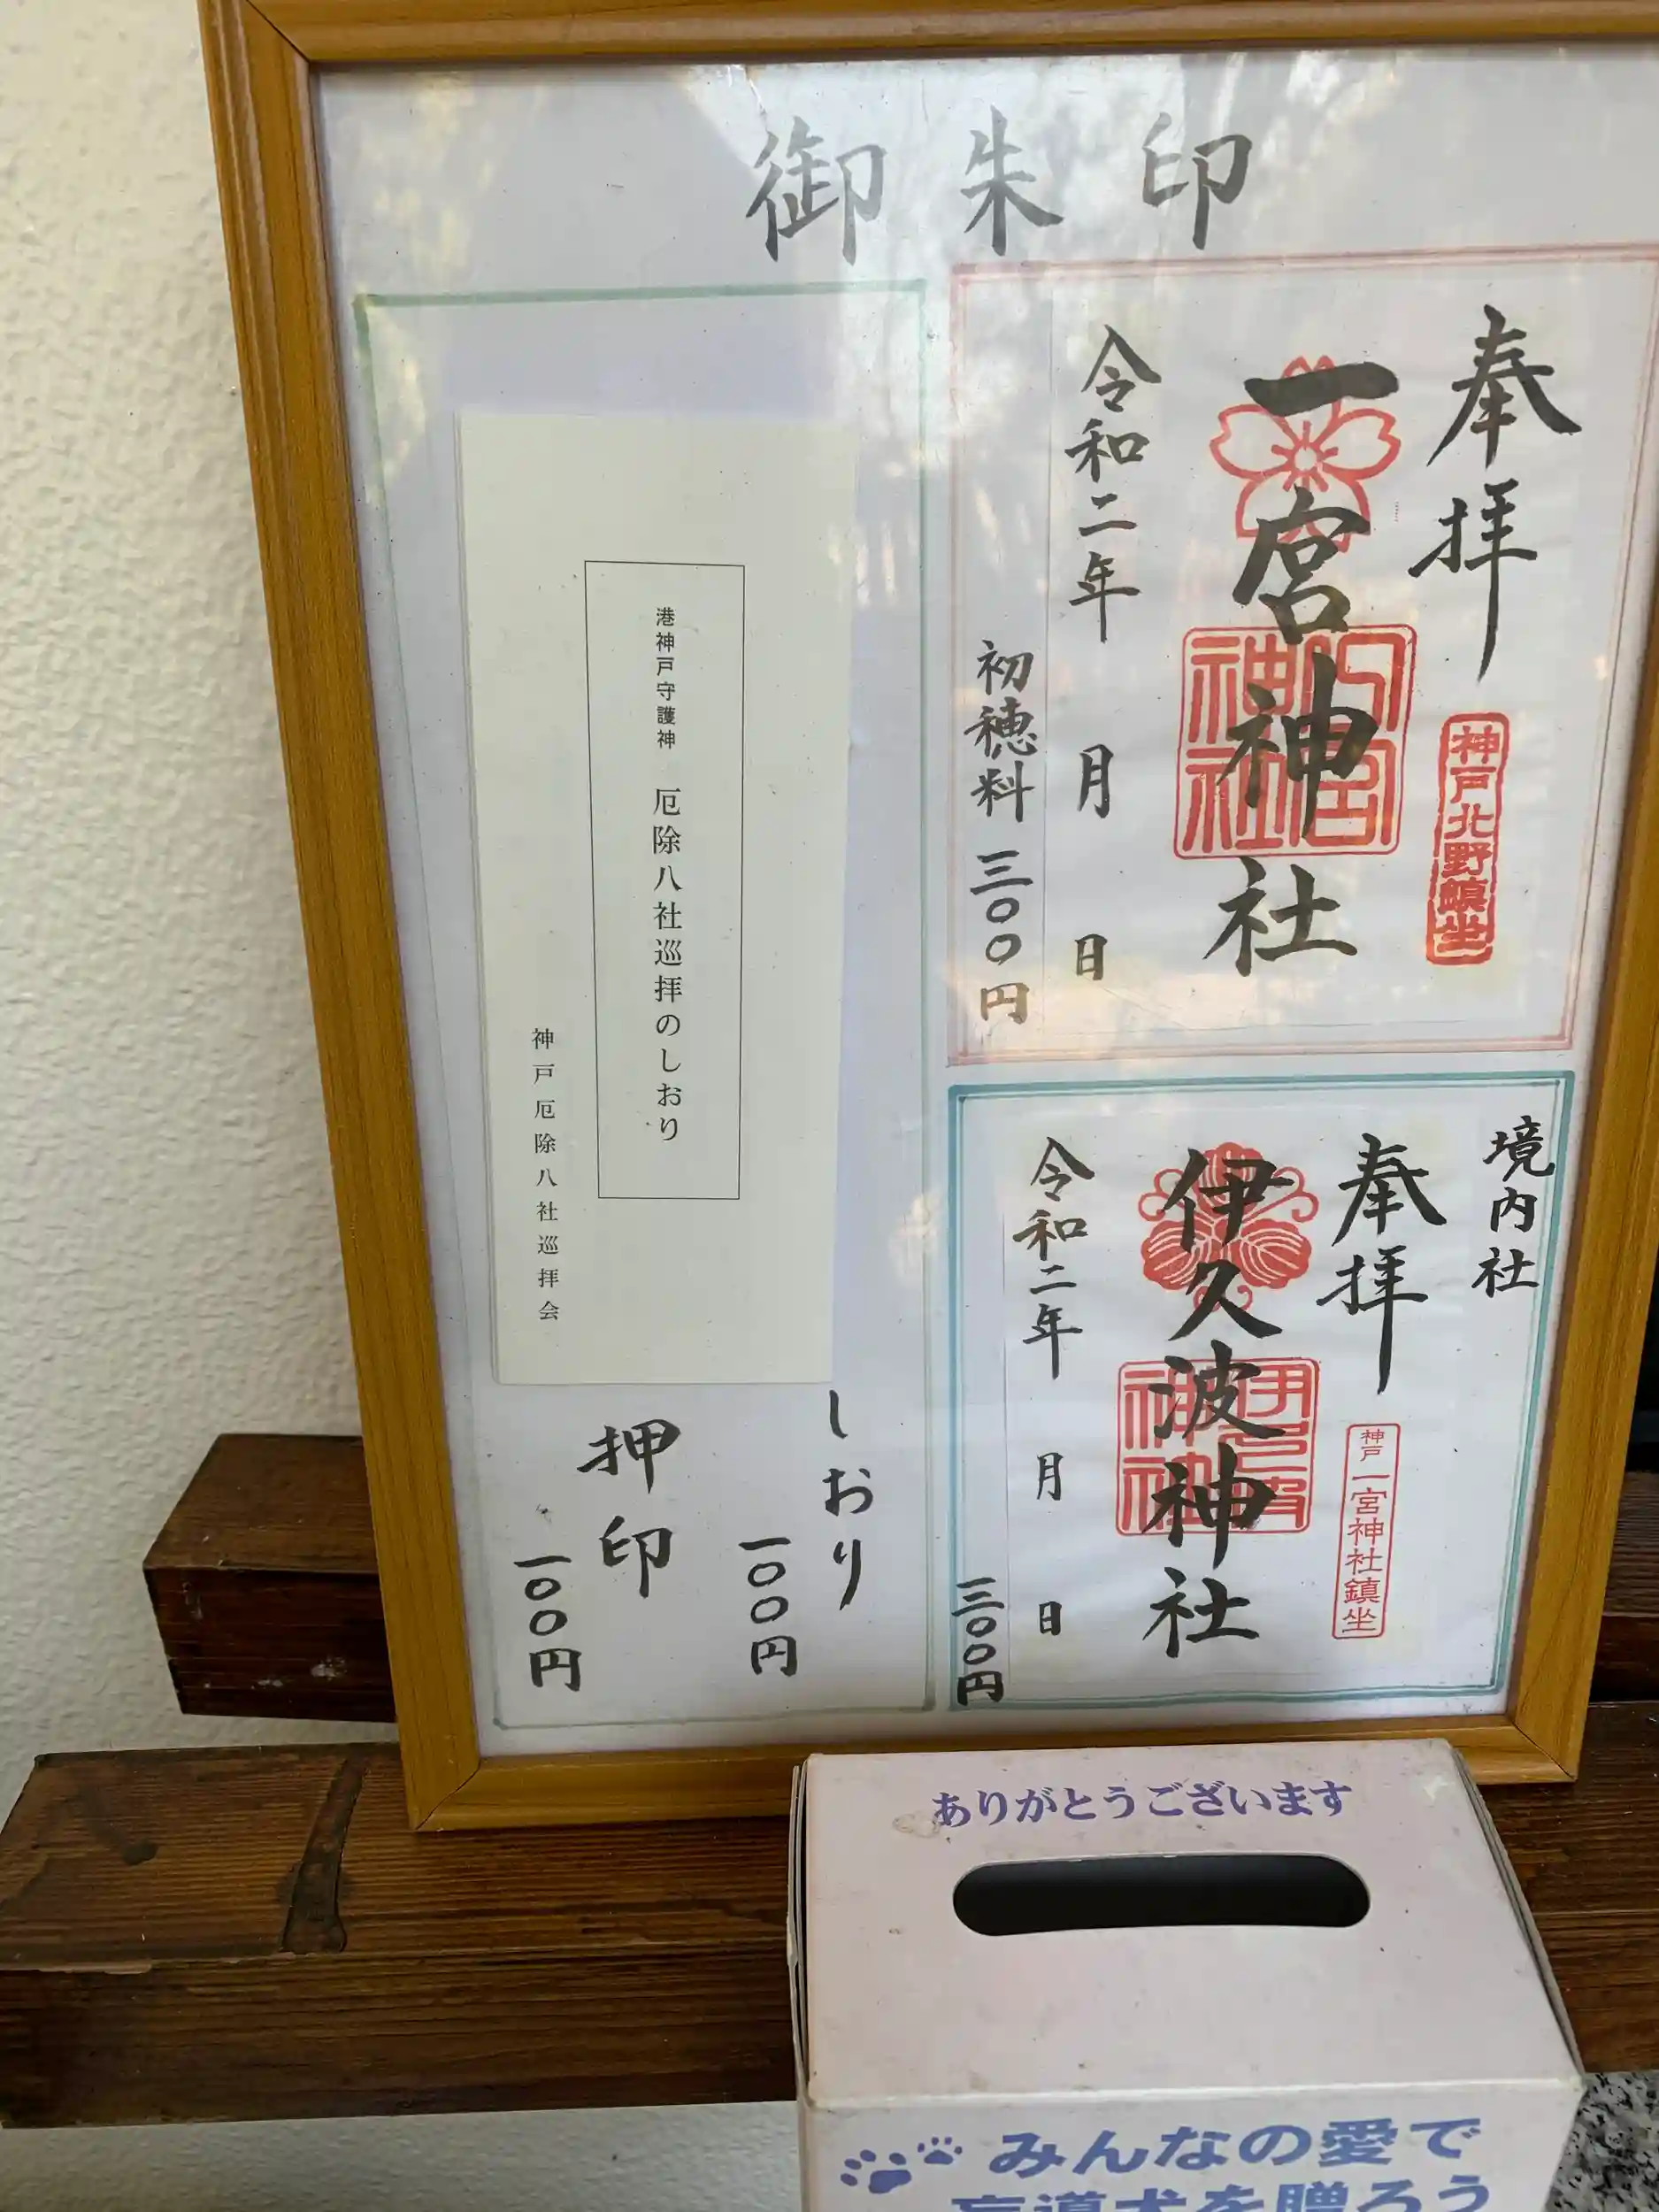 御朱印
奉拝
一宮神社
神戸北野鎮坐
令和二年 月 日
初穂料 三〇〇円
境内社
奉拝
伊久波神社
神戸一宮神社鎮坐
令和二年 月 日
三〇〇円
港神戸守護神 厄除八社巡拝のしおり
神戸厄除八社巡拝会
しおり
一〇〇円
押印
一〇〇円
ありがとうございます
みんなの愛で
盲導犬を贈ろう